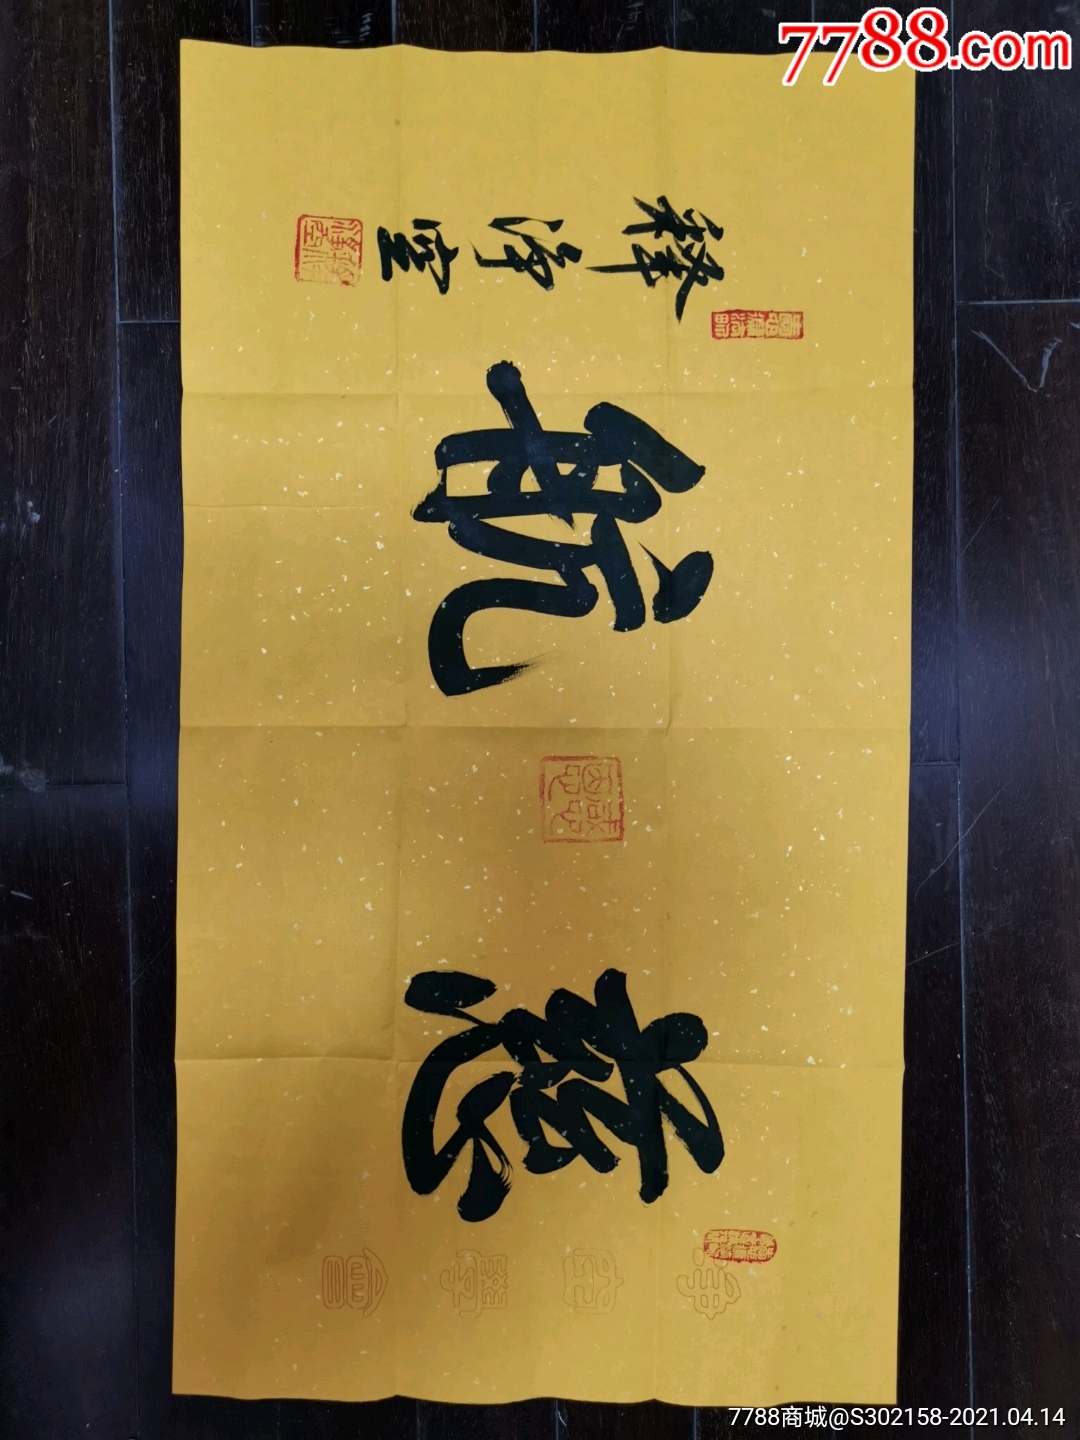 7788.com
慈航
釋淨空
淨空學會
7788商城@S302158-2021.04.14